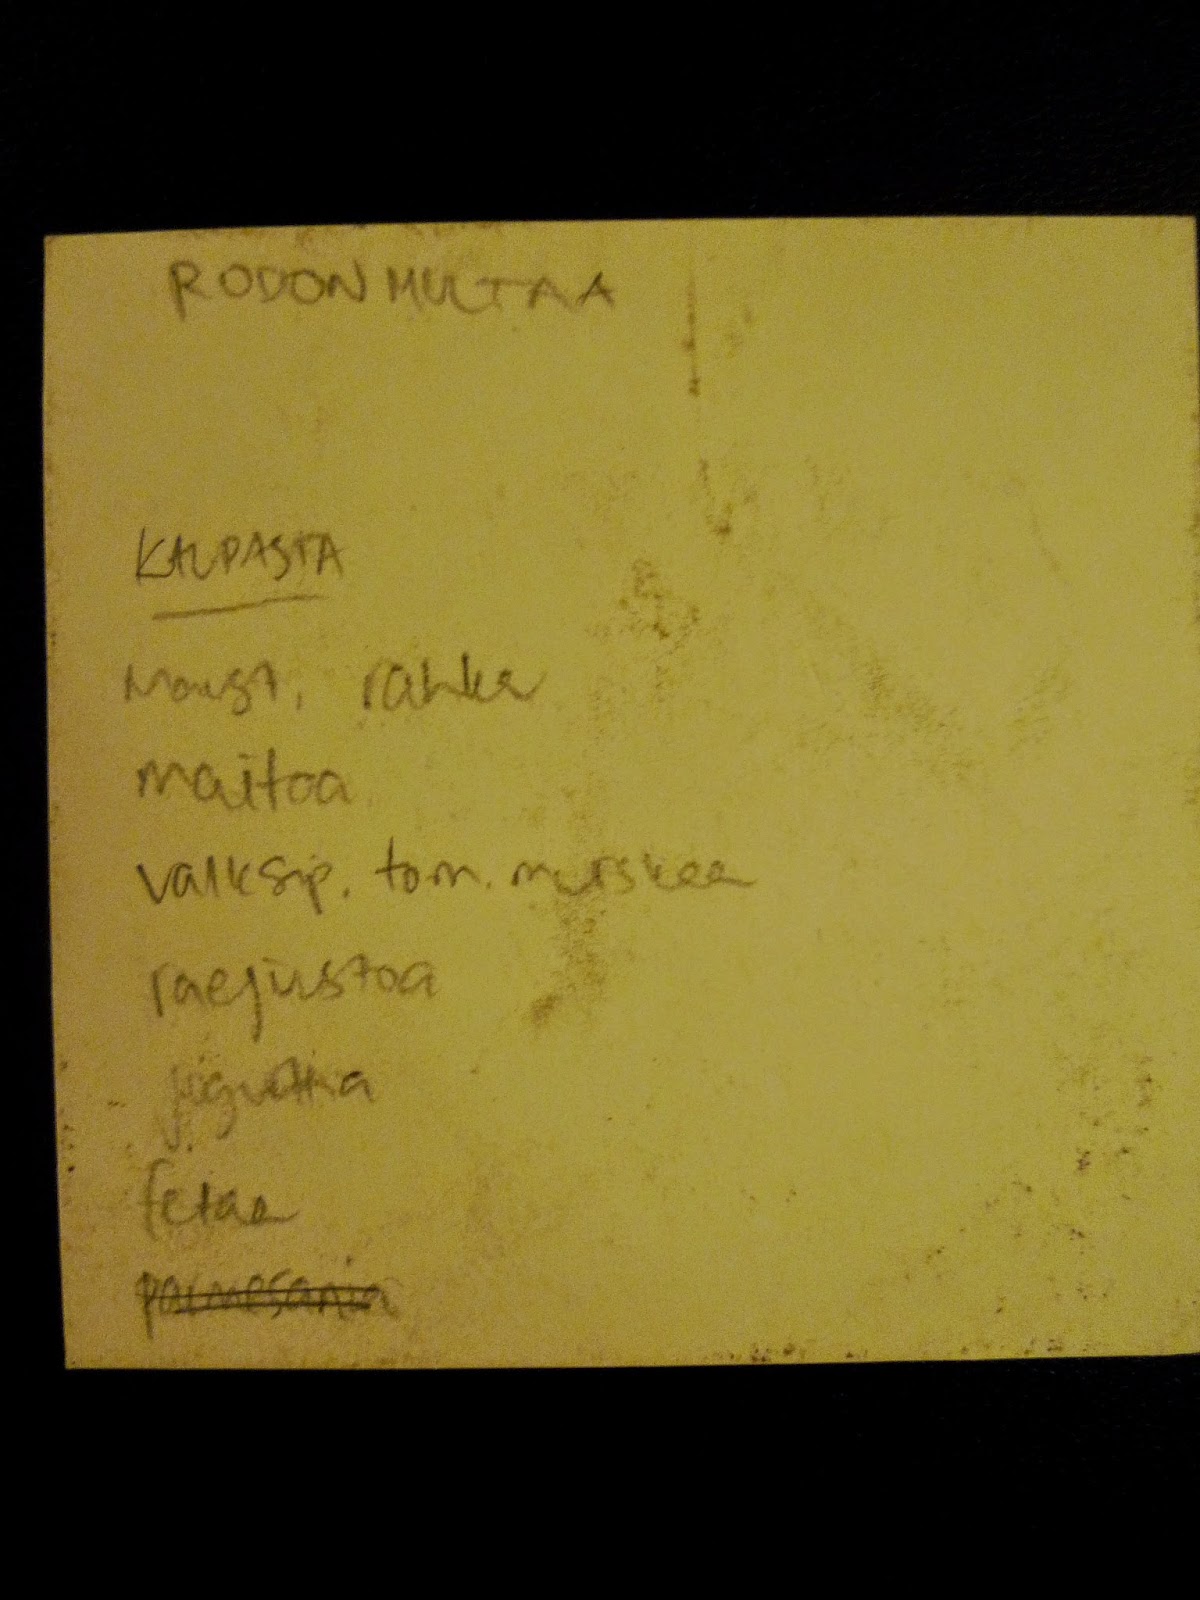 RODON MULTAA
KAUPASTA
maust. rahka
maitoa
valksip. tom. murskaa
raejustoa
jogurttia
fetaa
parmesania